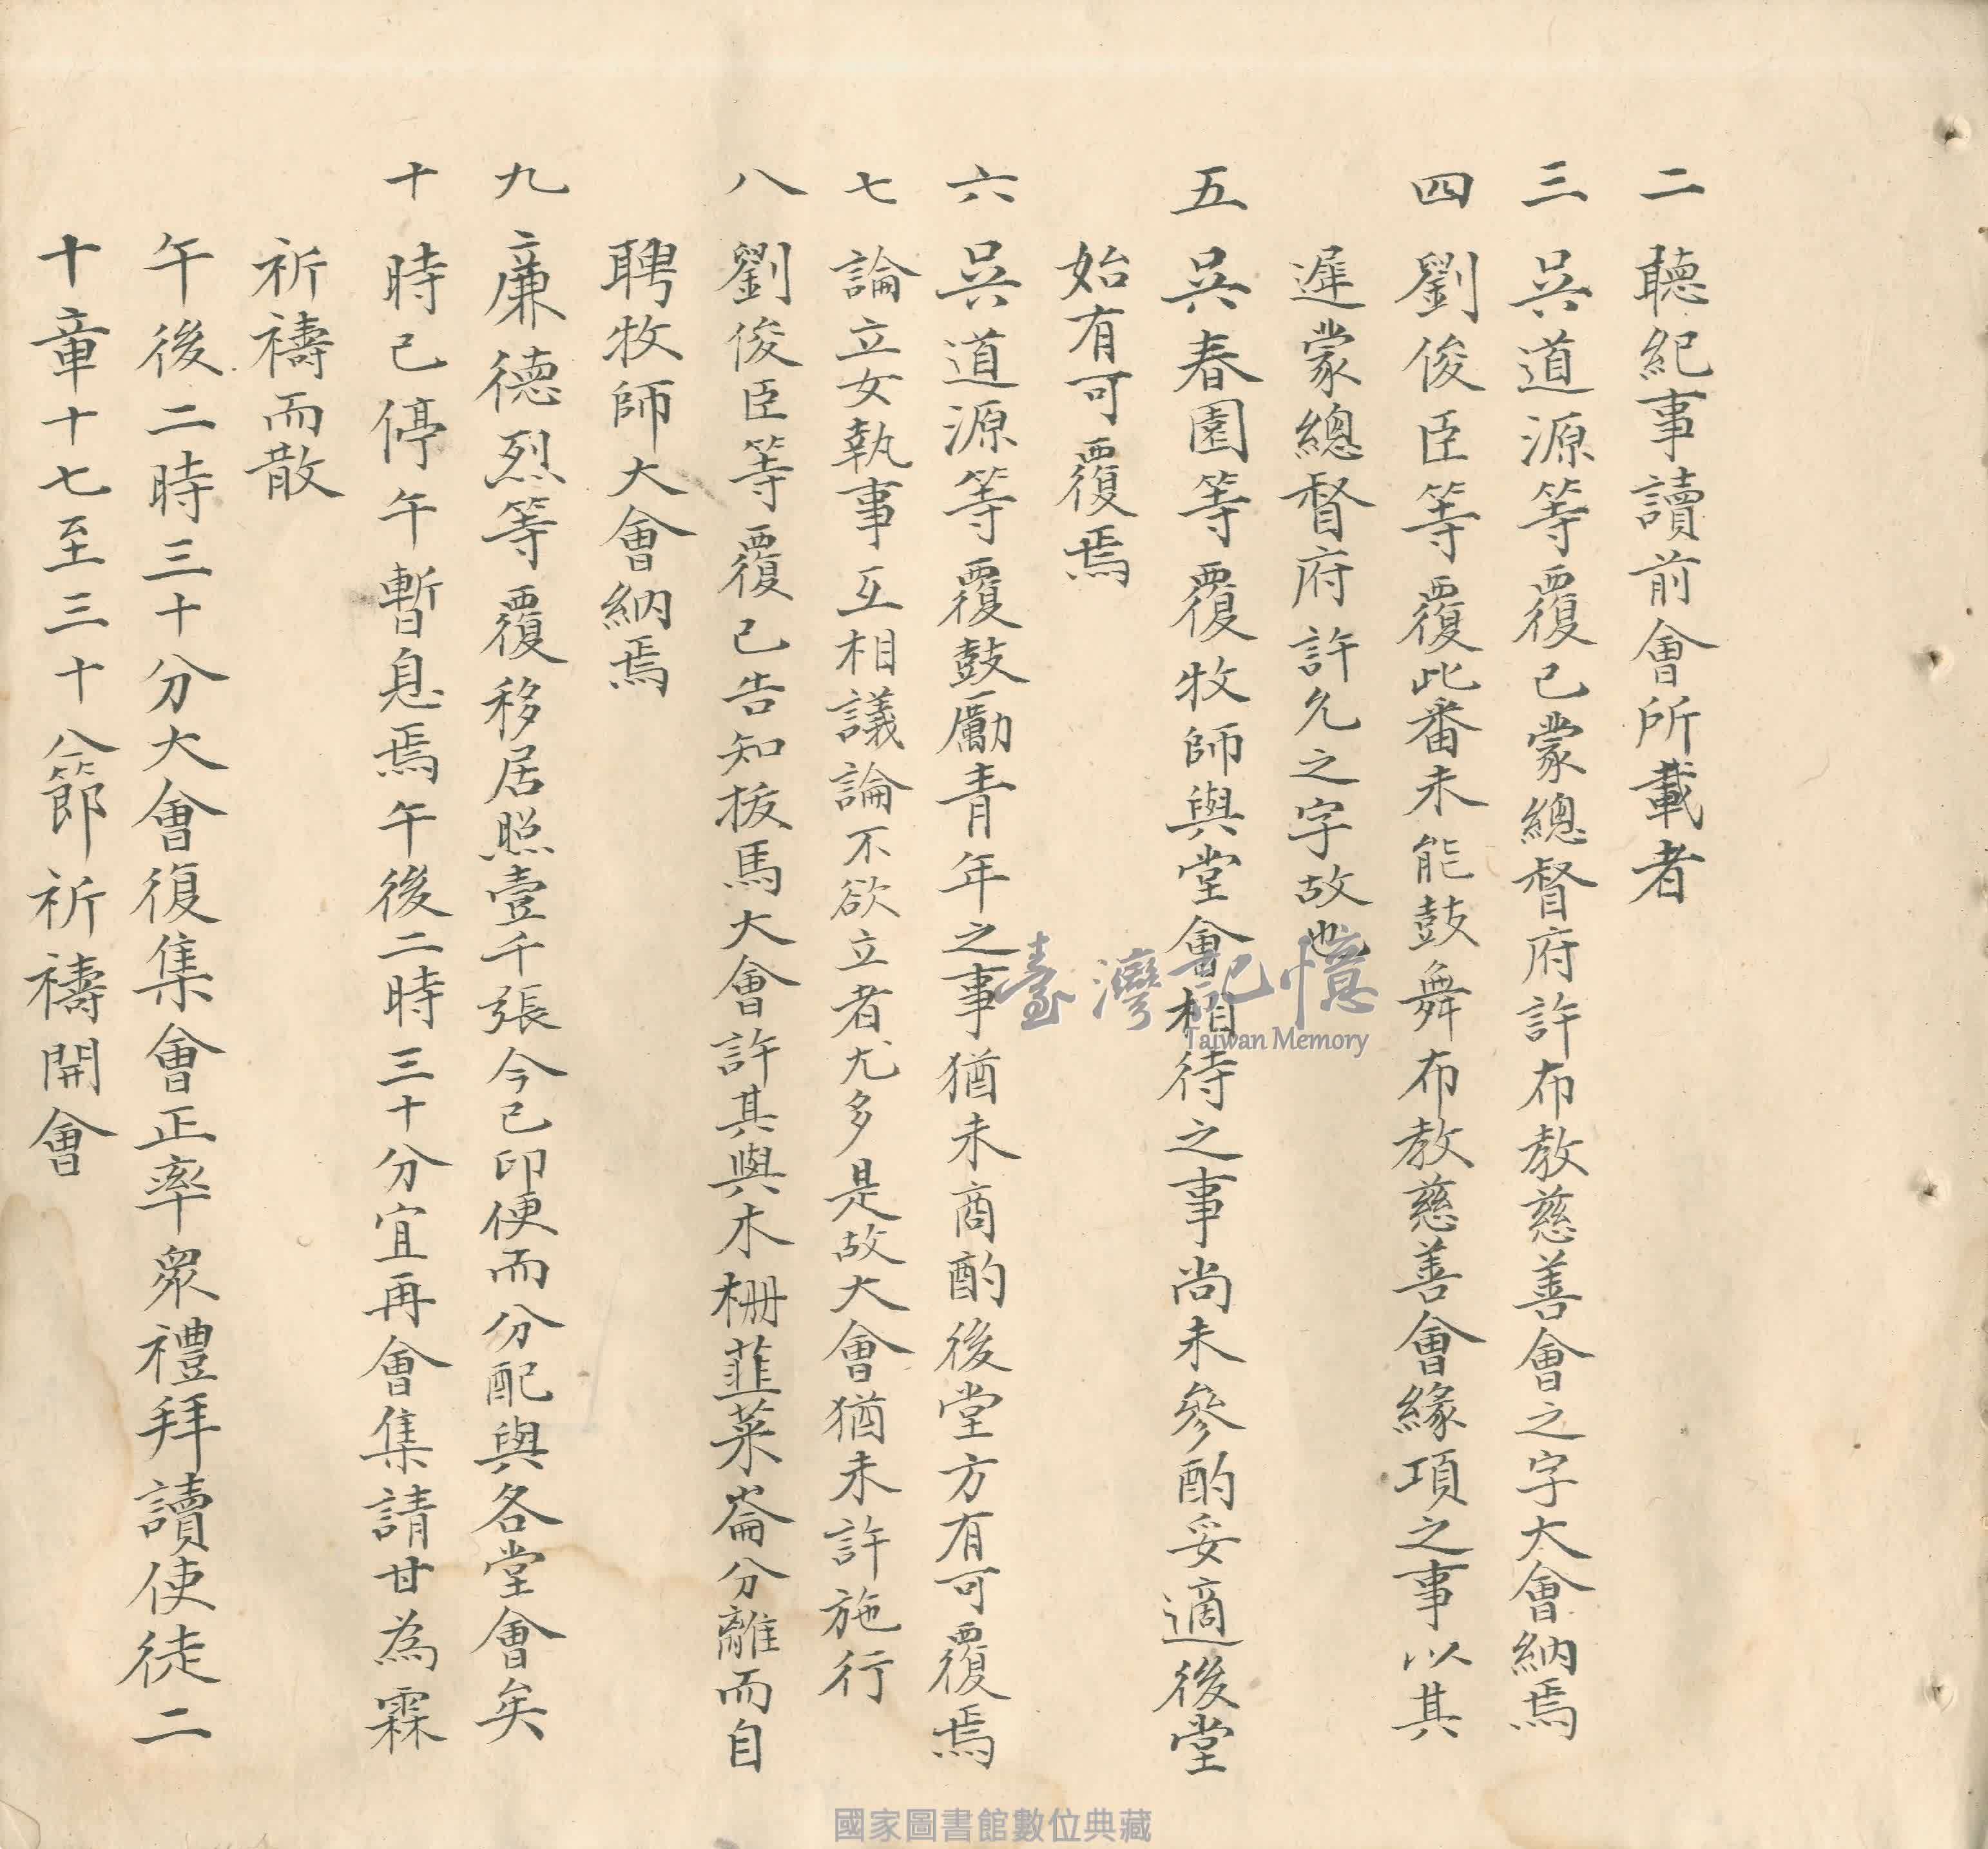 二 聽紀事讀前會所載者
三 吳道源等覆已蒙總督府許布教慈善會之字大會納焉
四 劉俊臣等覆此番未能鼓舞布教慈善會緣項之事以其
遲蒙總督府許允之字故也
五 吳春園等覆牧師與堂會相待之事尚未參酌妥適後堂
始有可覆焉
六 吳道源等覆鼓勵青年之事猶未商酌後堂方有可覆焉
七 論立女執事互相議論不欲立者尤多是故大會猶未許施行
八 劉俊臣等覆已告知拔馬大會許其與木柵韮菜崙分離而自
聘牧師大會納焉
九 廉德烈等覆移居照壹千張今已印便而分配與各堂會矣
十 時已停午暫息焉午後二時三十分宜再會集請甘為霖
祈禱而散
午後二時三十分大會復集會正率眾禮拜讀使徒二
十章十七至三十八節祈禱開會
臺灣記憶
Taiwan Memory
國家圖書館數位典藏